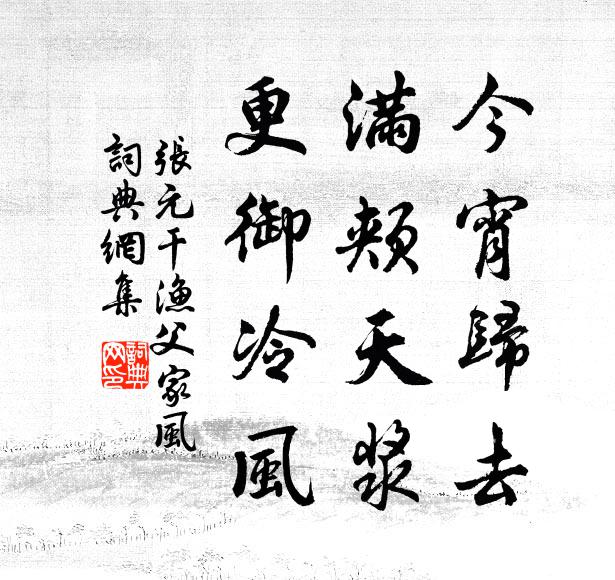 今宵歸去
滿頰天漿
更御冷風
張元干漁父家風
詞典網集
詞典
网印